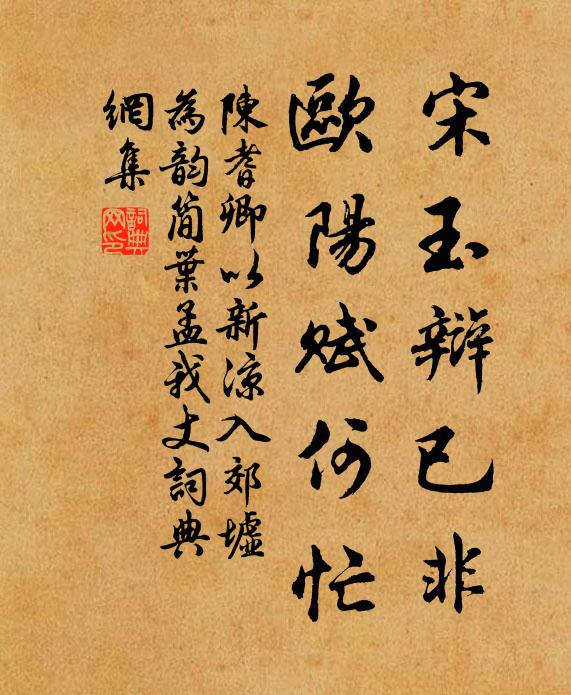 宋玉辯已非
歐陽賦何忙
陳耆卿以新涼入郊墟
為韵簡葉孟我丈詞典
網集
詞典網印